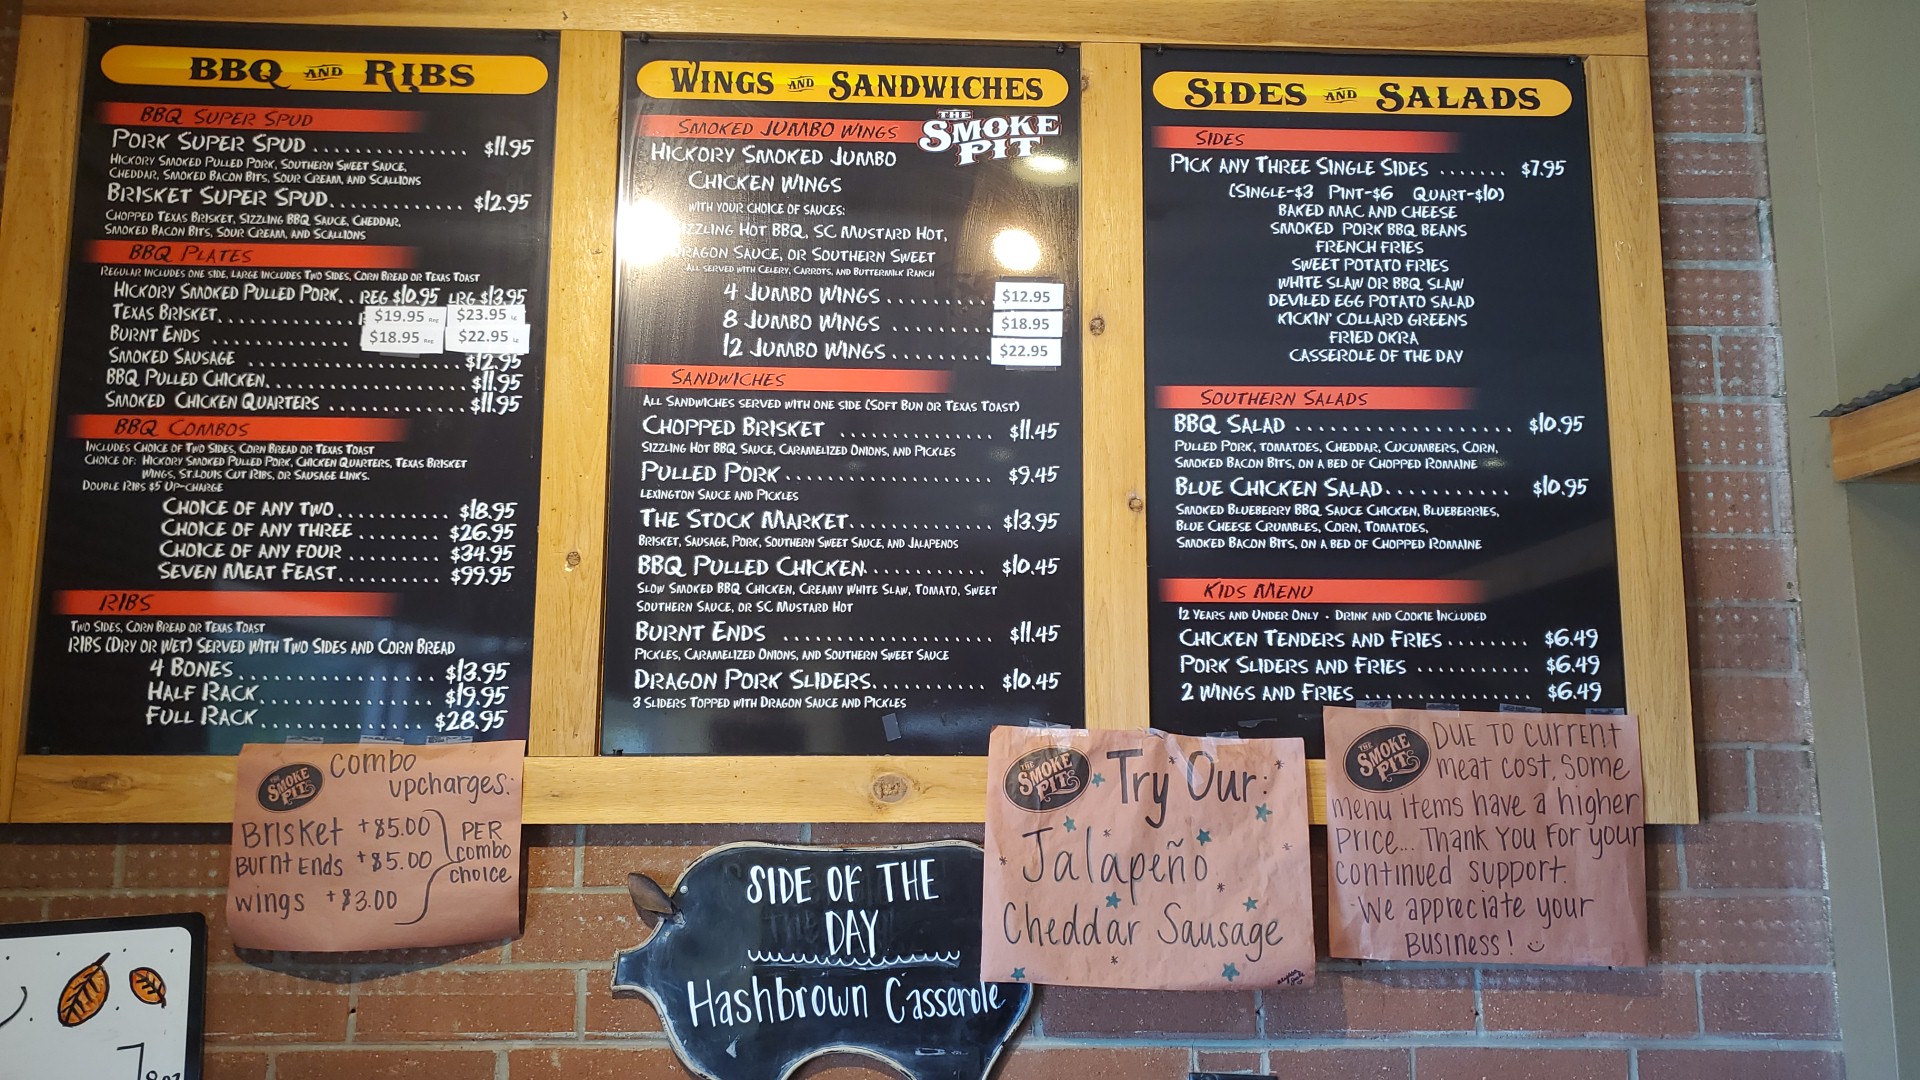 BBQ AND RIBS
BBQ SUPER SPUD
PORK SUPER SPUD ................ $11.95
HICKORY SMOKED PULLED PORK, SOUTHERN SWEET SAUCE,
CHEDDAR, SMOKED BACON BITS, SOUR CREAM, AND SCALLIONS
BRISKET SUPER SPUD............. $12.95
CHOPPED TEXAS BRISKET, SIZZLING BBQ SAUCE, CHEDDAR,
SMOKED BACON BITS, SOUR CREAM, AND SCALLIONS
BBQ PLATES
REGULAR INCLUDES ONE SIDE, LARGE INCLUDES TWO SIDES, CORN BREAD OR TEXAS TOAST
HICKORY SMOKED PULLED PORK.. REG $10.95 LRG $13.95
TEXAS BRISKET................ $19.95 Reg $23.95 Lg
BURNT ENDS ................ $18.95 Reg $22.95 Lg
SMOKED SAUSAGE ........................ $12.95
BBQ PULLED CHICKEN..................... $11.95
SMOKED CHICKEN QUARTERS .............. $11.95
BBQ COMBOS
INCLUDES CHOICE OF TWO SIDES, CORN BREAD OR TEXAS TOAST
CHOICE OF: HICKORY SMOKED PULLED PORK, CHICKEN QUARTERS, TEXAS BRISKET
WINGS, ST.LOUIS CUT RIBS, OR SAUSAGE LINKS.
DOUBLE RIBS $5 UP-CHARGE
CHOICE OF ANY TWO............ $18.95
CHOICE OF ANY THREE ........ $26.95
CHOICE OF ANY FOUR ......... $34.95
SEVEN MEAT FEAST........... $99.95
RIBS
TWO SIDES, CORN BREAD OR TEXAS TOAST
RIBS (DRY OR WET) SERVED WITH TWO SIDES AND CORN BREAD
4 BONES ................... $13.95
HALF RACK ................. $19.95
FULL RACK ................. $28.95
WINGS AND SANDWICHES
THE SMOKE PIT
SMOKED JUMBO WINGS
HICKORY SMOKED JUMBO
CHICKEN WINGS
WITH YOUR CHOICE OF SAUCES:
SIZZLING HOT BBQ, SC MUSTARD HOT,
DRAGON SAUCE, OR SOUTHERN SWEET
ALL SERVED WITH CELERY, CARROTS, AND BUTTERMILK RANCH
4 JUMBO WINGS .......... $12.95
8 JUMBO WINGS .......... $18.95
12 JUMBO WINGS ......... $22.95
SANDWICHES
ALL SANDWICHES SERVED WITH ONE SIDE (SOFT BUN OR TEXAS TOAST)
CHOPPED BRISKET ............... $11.45
SIZZLING HOT BBQ SAUCE, CARAMELIZED ONIONS, AND PICKLES
PULLED PORK .................... $9.45
LEXINGTON SAUCE AND PICKLES
THE STOCK MARKET.............. $13.95
BRISKET, SAUSAGE, PORK, SOUTHERN SWEET SAUCE, AND JALAPENOS
BBQ PULLED CHICKEN............ $10.45
SLOW SMOKED BBQ CHICKEN, CREAMY WHITE SLAW, TOMATO, SWEET
SOUTHERN SAUCE, OR SC MUSTARD HOT
BURNT ENDS .................... $11.45
PICKLES, CARAMELIZED ONIONS, AND SOUTHERN SWEET SAUCE
DRAGON PORK SLIDERS........... $10.45
3 SLIDERS TOPPED WITH DRAGON SAUCE AND PICKLES
SIDES AND SALADS
SIDES
PICK ANY THREE SINGLE SIDES ....... $7.95
(SINGLE-$3 PINT-$6 QUART-$10)
BAKED MAC AND CHEESE
SMOKED PORK BBQ BEANS
FRENCH FRIES
SWEET POTATO FRIES
WHITE SLAW OR BBQ SLAW
DEVILED EGG POTATO SALAD
KICKIN' COLLARD GREENS
FRIED OKRA
CASSEROLE OF THE DAY
SOUTHERN SALADS
BBQ SALAD ..................... $10.95
PULLED PORK, TOMATOES, CHEDDAR, CUCUMBERS, CORN,
SMOKED BACON BITS, ON A BED OF CHOPPED ROMAINE
BLUE CHICKEN SALAD............ $10.95
SMOKED BLUEBERRY BBQ SAUCE CHICKEN, BLUEBERRIES,
BLUE CHEESE CRUMBLES, CORN, TOMATOES,
SMOKED BACON BITS, ON A BED OF CHOPPED ROMAINE
KIDS MENU
12 YEARS AND UNDER ONLY • DRINK AND COOKIE INCLUDED
CHICKEN TENDERS AND FRIES........ $6.49
PORK SLIDERS AND FRIES ........... $6.49
2 WINGS AND FRIES ................ $6.49
THE SMOKE PIT
combo
upcharges:
Brisket +$5.00
Burnt Ends +$5.00
wings +$3.00
PER
combo
choice
SIDE OF THE
DAY
Hashbrown Casserole
THE SMOKE PIT
Try Our:
Jalapeño
Cheddar Sausage
THE SMOKE PIT
DUE TO current
meat cost, some
menu items have a higher
Price... Thank you for your
continued support.
We appreciate your
Business!